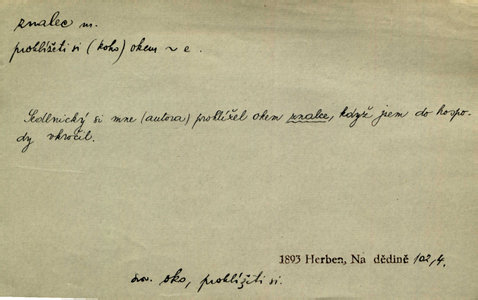 znalec m.
prohlížeti si (koho) okem ~ e.
Sedlnický si mne (autora) prohlížel okem znalce, když jsem do hospo-
dy vkročil.
1893 Herben, Na dědině 102,4.
sv. oko, prohlížeti si.